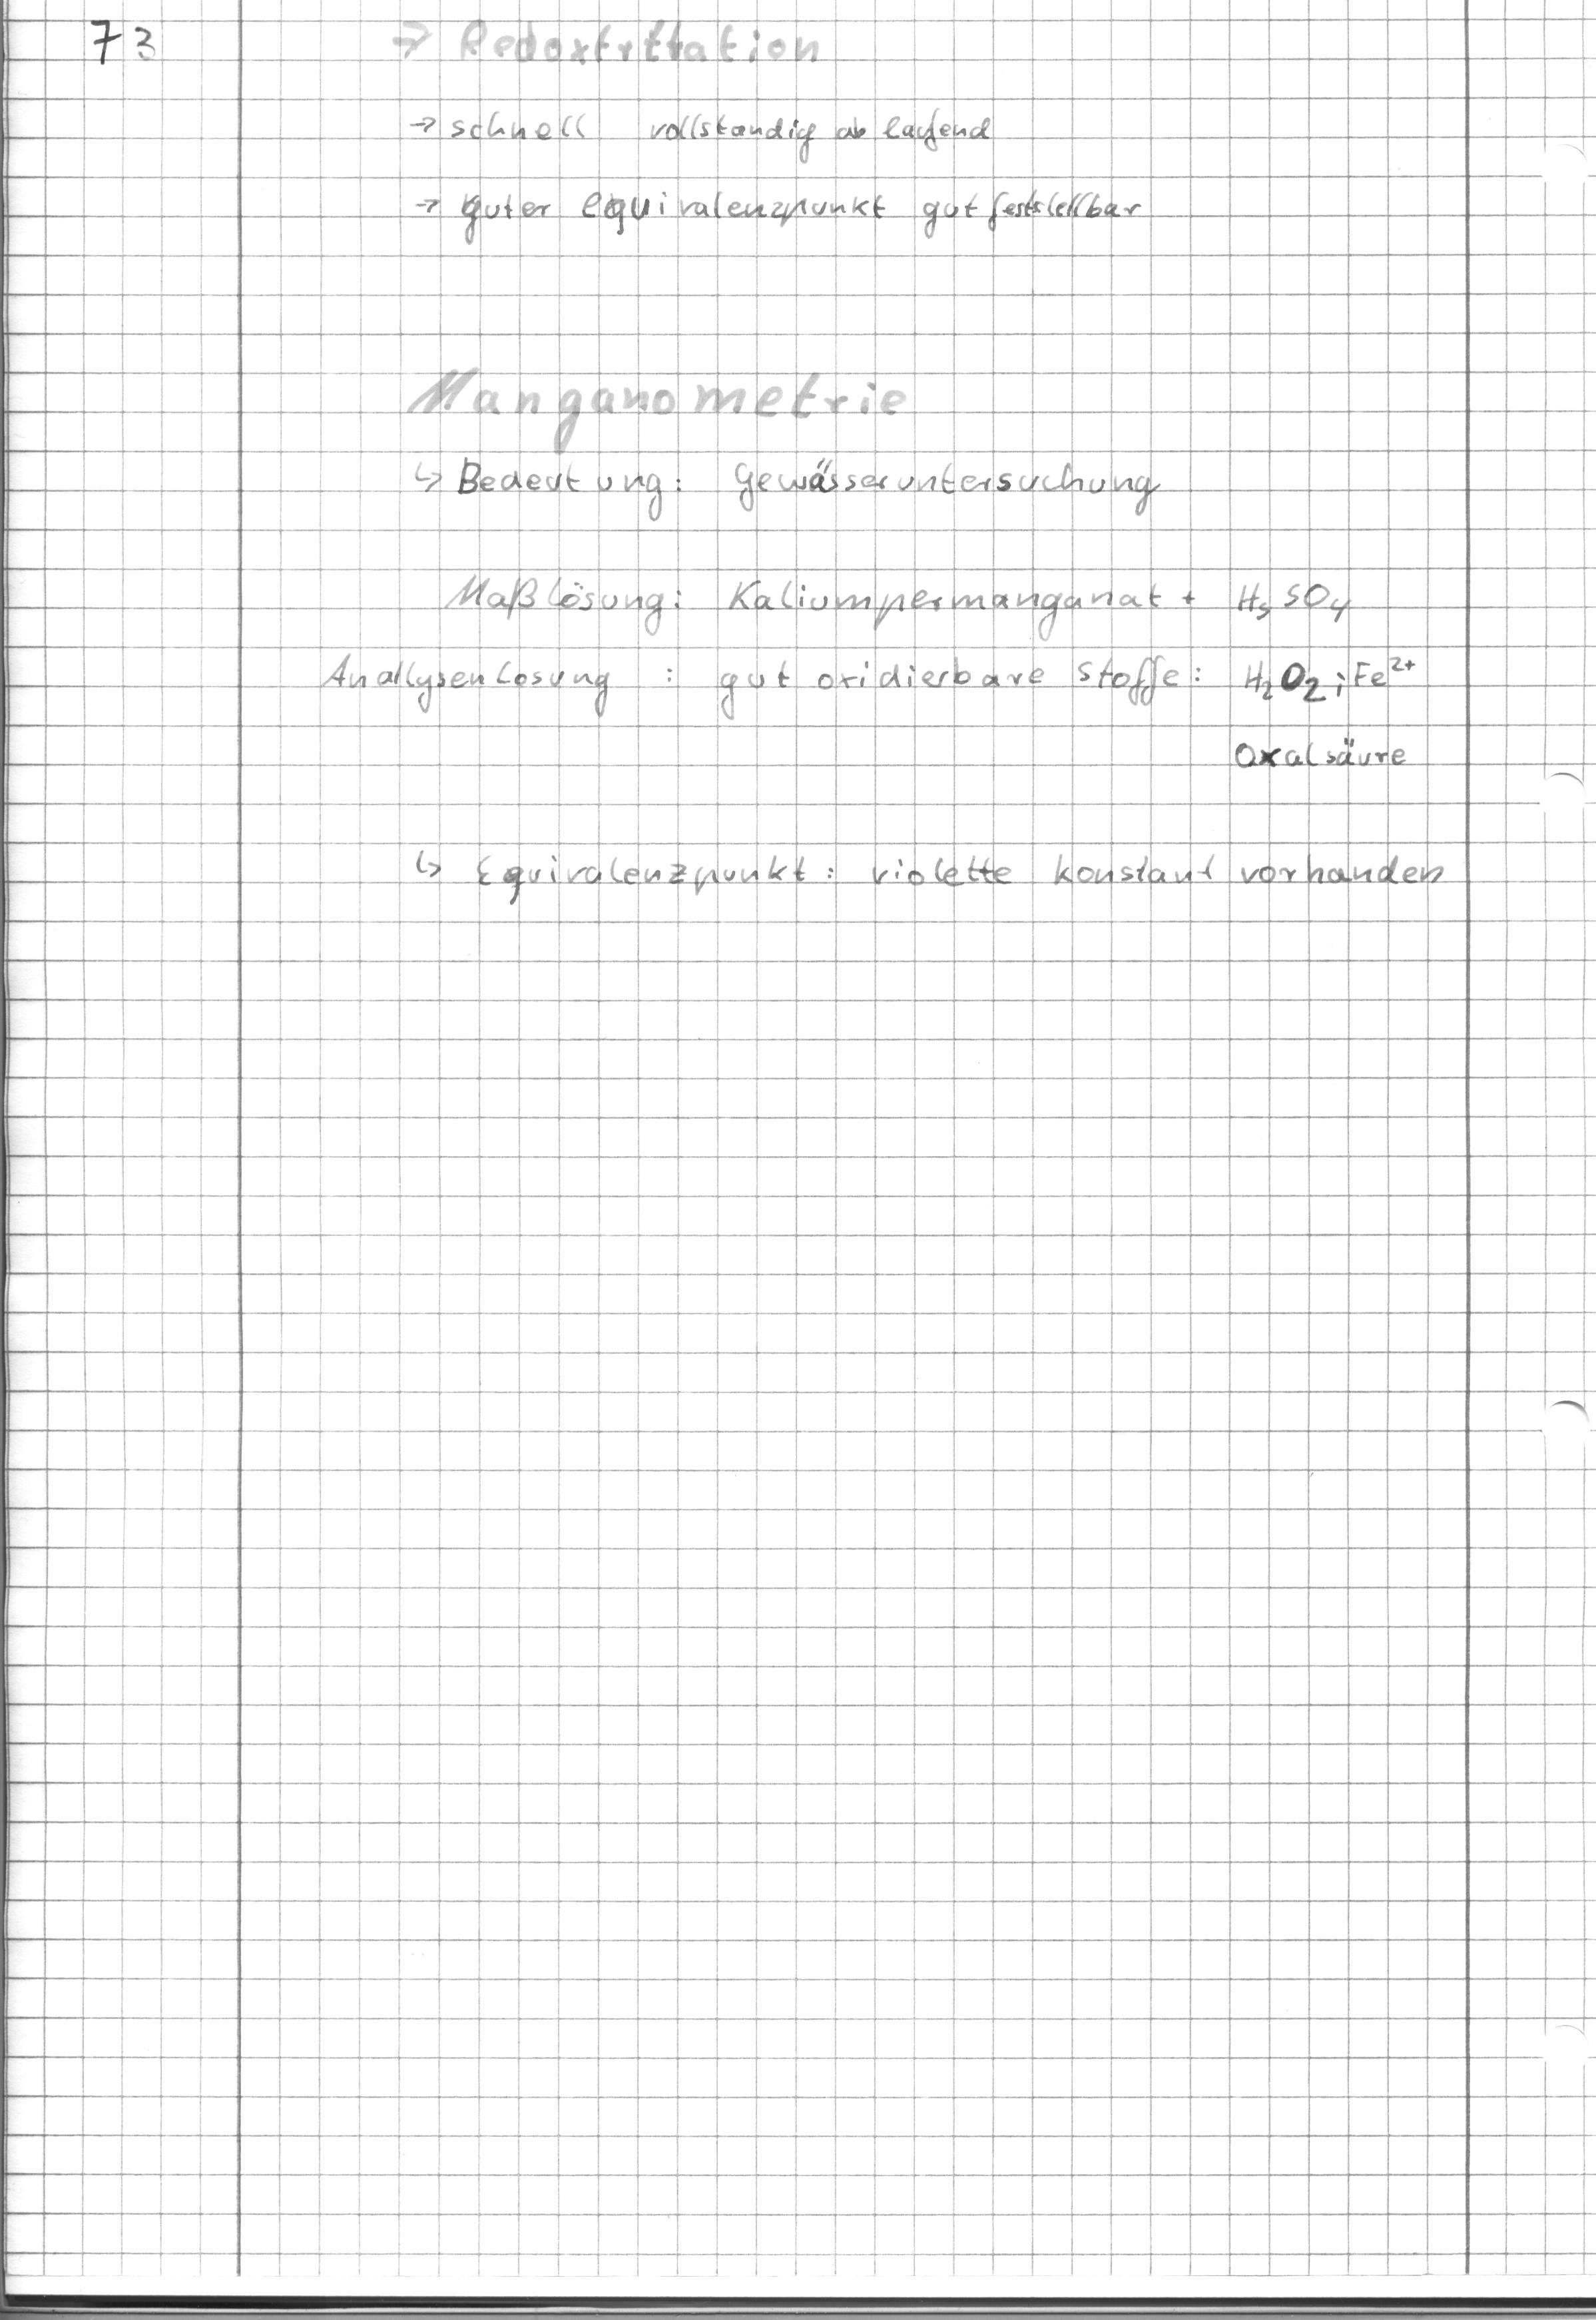 73 → Redoxtitration
→ schnell vollständig ab laufend
→ guter equivalenzpunkt gut feststellbar
Manganometrie
↳ Bedeutung: Gewässeruntersuchung
Maßlösung: Kaliumpermanganat + H₂SO₄
Anallysenlosung : gut oxidierbare Stoffe: H₂O₂; Fe²⁺
Oxalsäure
↳ Equivalenzpunkt: violette konstant vorhanden